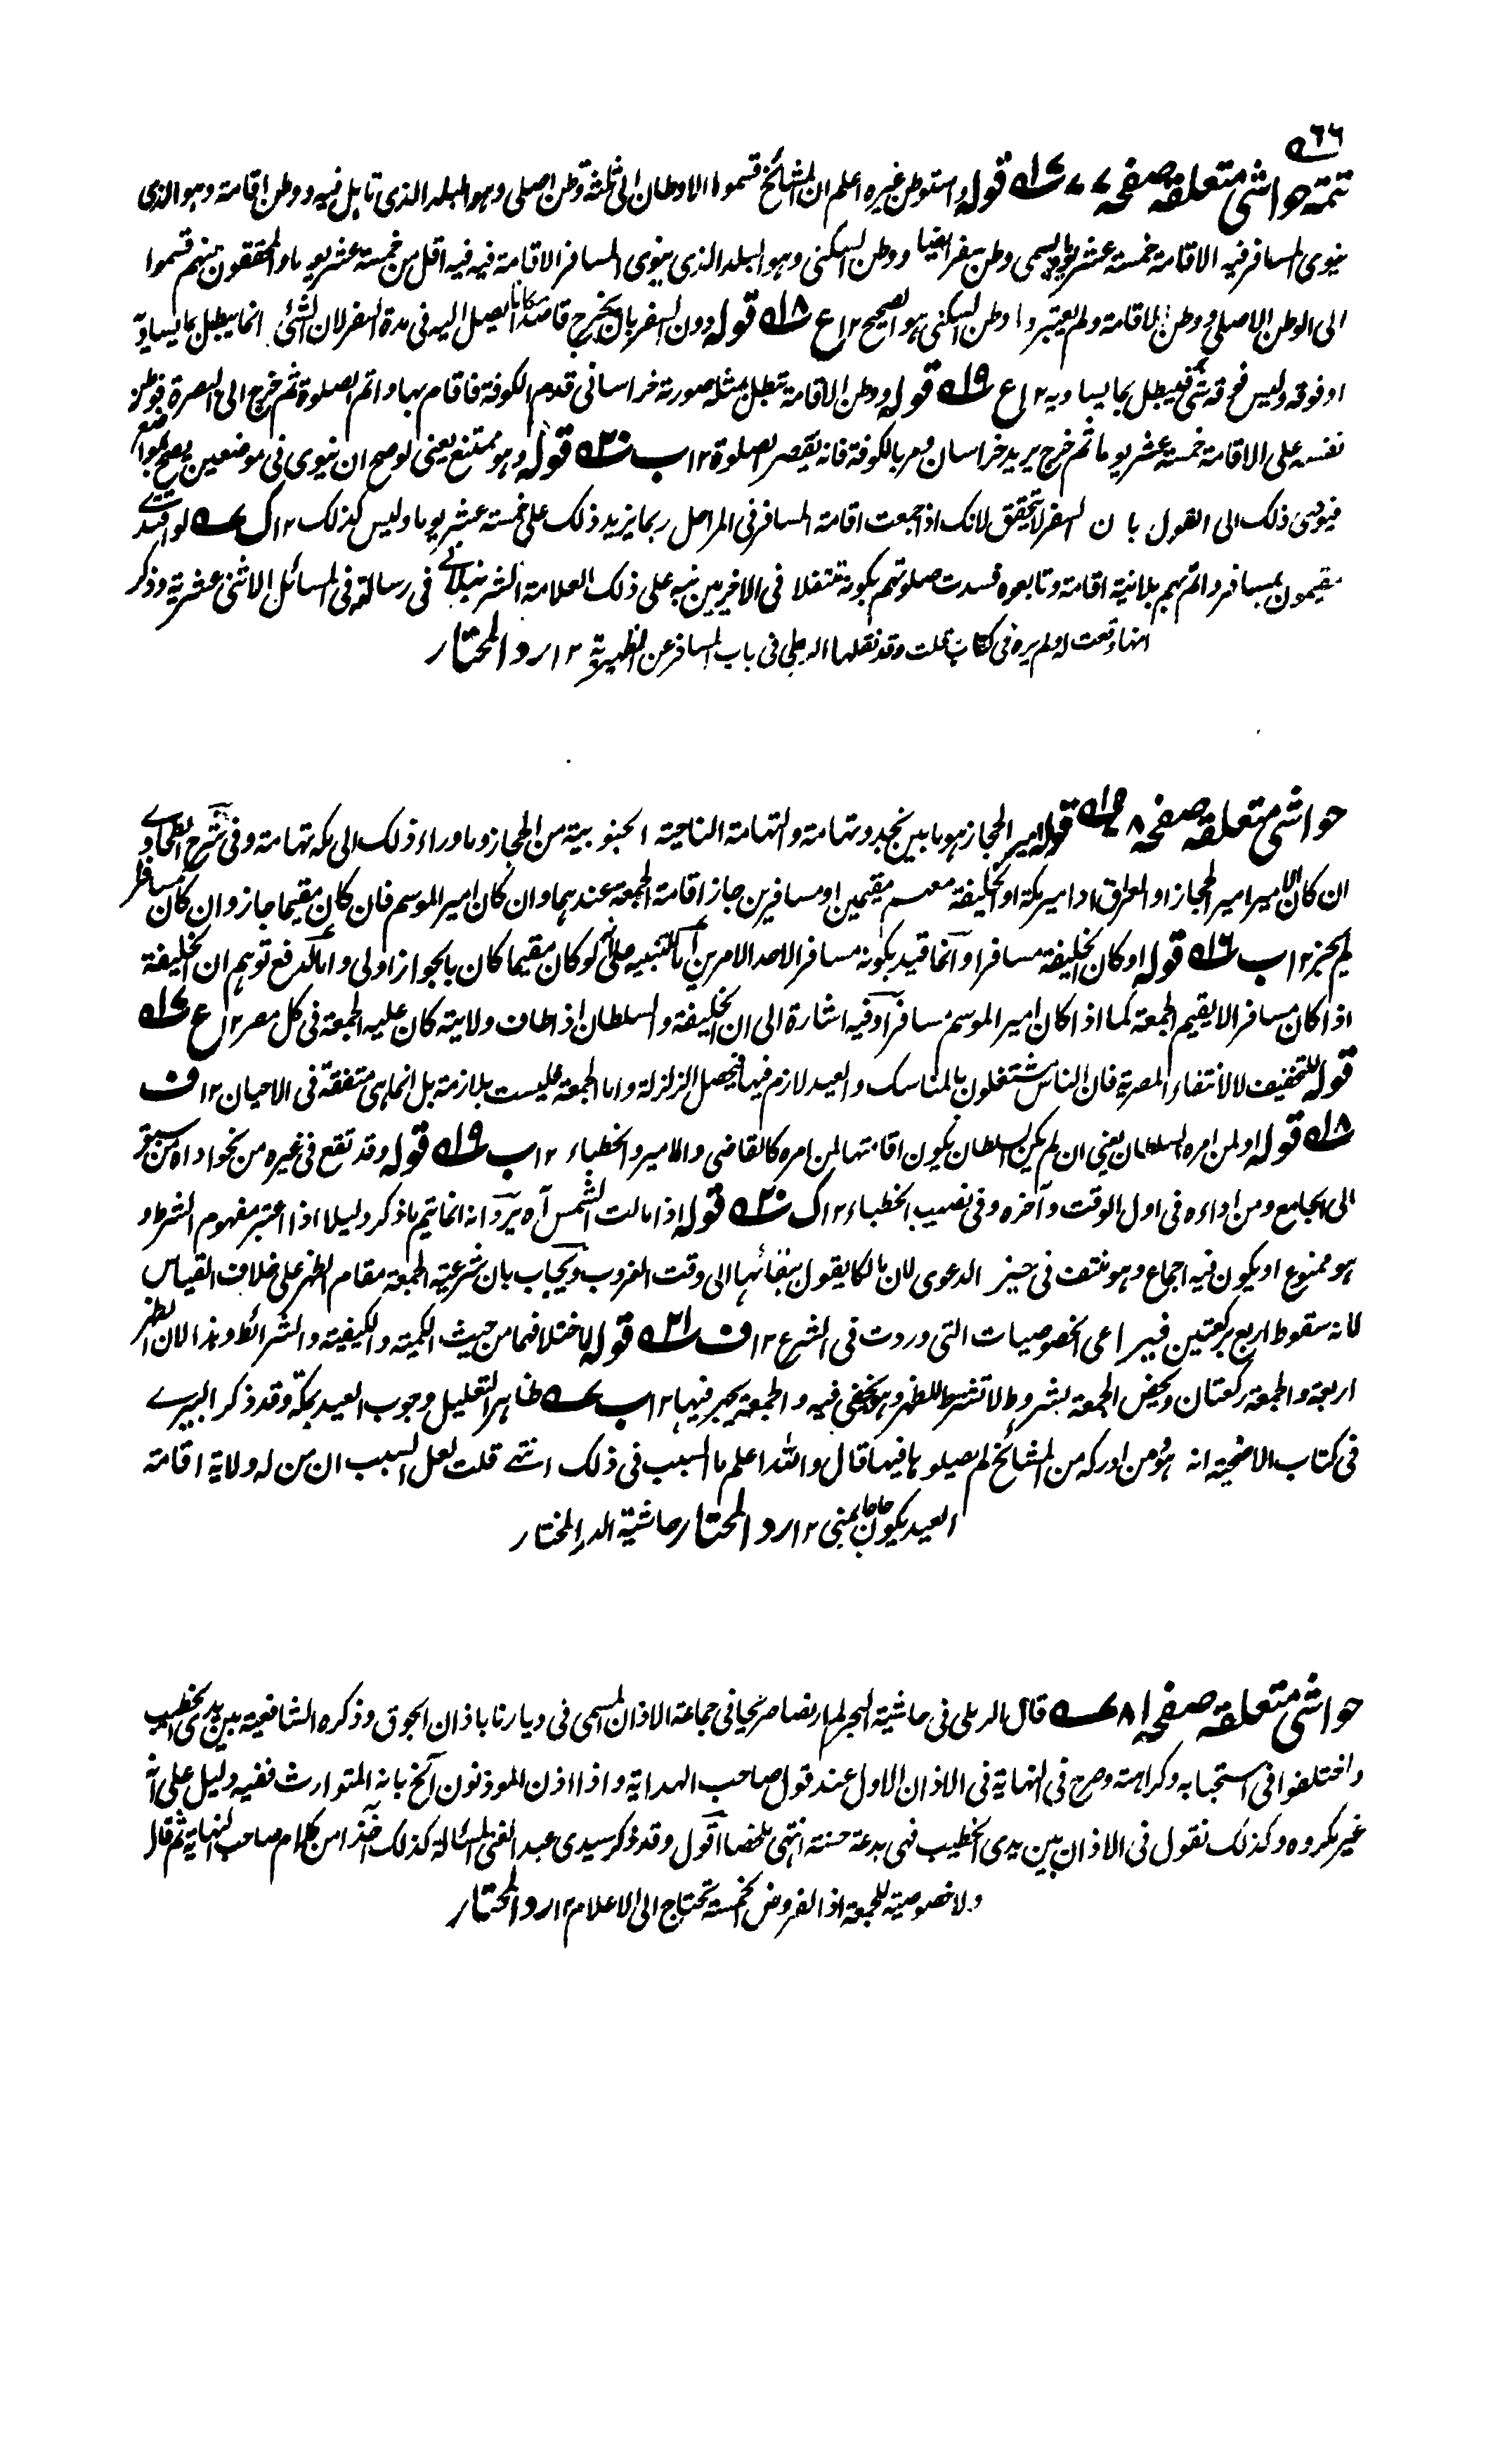 ٦٦
تتمة حواشی متعلقه صفحه ٧٧ ١٧ قوله واستوطن غیره اعلم ان المشائخ قسموا الاوطان الی ثلثة وطن اصلی وهو البلد الذی تاهل فیه ووطن اقامة وهو الذی
ینوی المسافر فیه الاقامة خمسة عشر یوما ویسمی وطن سفر ایضا ووطن السکنی وهو البلد الذی ینوی المسافر الاقامة فیه فیه اقل من خمسة عشر یوما والمحققون منهم قسموا
الی الوطن الاصلی ووطن الاقامة ولم یعتبروا وطن السکنی هو الصحیح ١٢ ع ١٨ قوله دون السفر بان یخرج قاصدا مکانا یصل الیه فی مدة السفر لان الشئ انما یبطل بما یساویه
او فوقه ولیس فوقه شئ فیبطل بما یساویه ١٢ ع ١٩ قوله ووطن الاقامة تبطل بمثله صورته خراسانی قدم الکوفة فاقام بها واتم الصلوة ثم خرج الی البصرة فوطن
نفسه علی الاقامة خمسة عشر یوما ثم خرج یرید خراسان ومر بالکوفة فانه یقصر الصلوة ١٢ ب ٢٠ قوله وهو ممتنع یعنی لو صح ان ینوی فی موضعین یصح فی مواضع
فیودی ذلک الی القول بان السفر لا یتحقق لانک اذا جمعت اقامة المسافر فی المراحل ربما یزید ذلک علی خمسة عشر یوما ولیس کذلک ١٢ ک لو اقتدے
مقیمون بمسافر واتم بهم بلا نیة اقامة وتابعوه فسدت صلوتهم بکونه متنفلا فی الاخریین نبه علی ذلک العلامة الشرنبلالے فی رسالته فی المسائل الاثنی عشریة وذکر
انها وقعت له ولم یره فی کتاب قلت وقد نقلها الرملی فی باب المسافر عن الظهیریة ١٢ رد المحتار
حواشی متعلقه صفحه ٧٨ ١٥ قوله امیر الحجاز هو ما بین نجد وتهامة والتهامة الناحیة الجنوبیة من الحجاز وما وراء ذلک الی مکه تهامة وفی شرح الطحاوے
ان کان الامیر امیر الحجاز او العراق او امیر مکة او الخلیفة معهم مقیمین او مسافرین جاز اقامة الجمعة عندهما وان کان امیر الموسم فان کان مقیما جاز وان کان مسافرا
لم یجز ١٢ ب ١٦ قوله او کان الخلیفة مسافرا وانما قید بکونه مسافرا لاحد الامرین اما للتنبیه علی انه لو کان مقیما کان بالجواز اولی واما لدفع توهم ان الخلیفة
اذا کان مسافرا لا یقیم الجمعة کما اذا کان امیر الموسم مسافرا وفیه اشارة الی ان الخلیفة والسلطان اذا طاف ولایته کان علیه الجمعة فی کل مصر ١٢ ع ١٧
قوله للتخفیف لا لانتفاء المصریة فان الناس مشتغلون بالمناسک والعید لازم فیها فیحصل الزلزلة واما الجمعة فلیست بلازمة بل انما هی متفقة فی الاحیان ١٢ ف
١٨ قوله او لمن امره السلطان یعنی ان لم یکن السلطان یکون اقامتها لمن امره کالقاضی والامیر والخطباء ١٢ ب ١٩ قوله وقد تقع فی غیره من نحو اداه من سبق
الی الجامع ومن اداءه فی اول الوقت وآخره وفی نصیب الخطباء ١٢ ک ٢٠ قوله اذا مالت الشمس آه یرد انه انما یتم ما ذکر دلیلا اذا اعتبر مفهوم الشرط و
هو ممنوع او یکون فیه اجماع وهو منتف فی حیز الدعوی لان مالکا یقول ببقائها الی وقت الغروب ویجاب بان شرعیة الجمعة مقام الظهر علی خلاف القیاس
لانه سقوط اربع برکعتین فیراعی الخصوصیات التی وردت فی الشرع ١٢ ف ٢١ قوله لاختلافهما من حیث الکمیة والکیفیة والشرائط وهذا لان الظهر
اربعة والجمعة رکعتان ویخص الجمعة بشروط لا تشترط للظهر وهو یخفی فیه والجمعة یجهر فیها ١٢ ب ظاهر التعلیل وجوب العید بمکة وقد ذکر البیرے
فی کتاب الاضحیة انه هو ومن ادرکه من المشائخ لم یصلوها فیها قال والله اعلم ما السبب فی ذلک انتهے قلت لعل السبب ان من له ولایة اقامة
العید یکون حاجا بمنی ١٢ رد المحتار حاشیة الدر المختار
حواشی متعلقه صفحه ٨١ قال الرملی فی حاشیة البحر لم ار نصا صریحا فی جماعة الاذان المسمی فی دیارنا باذان الجوق وذکره الشافعیة بین یدی الخطیب
واختلفوا فی استحبابه وکراهته وصرح فی النهایة فی الاذان الاول عند قول صاحب الهدایة واذا اذن الموذنون آلخ بانه المتوارث ففیه دلیل علی انه
غیر مکروه وکذلک نقول فی الاذان بین یدی الخطیب فهی بدعة حسنة انتهی ملخصا اقول وقد ذکر سیدی عبد الغنی المسئالة کذلک آخذا من کلام صاحب النهایة ثم قال
ولا خصوصیة للجمعة اذ الفروض الخمسة تحتاج الی الاعلام ١٢ رد المحتار